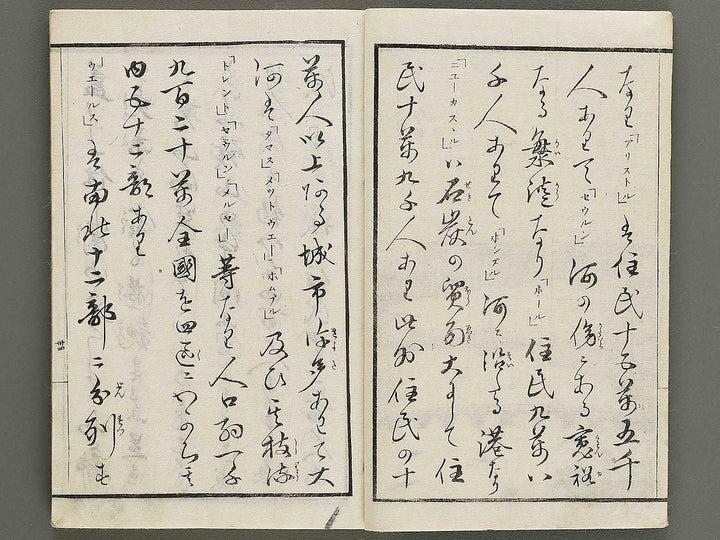 なり「ブリストル」は住民十五萬五千
人ありて「セウルン」河の傍にある富裕
なる繁港なり「ホール」住民九萬八
千人ありて「ホンブル」河に沿たる港なり
「ニューカスツル」ハ石炭の貿易大にして住
民十萬九千人あり此外住民の十
萬人以上ある城市許多ありて大
河は「タマス」「メットウエー」「ホムブル」及ひ其枝流
「トレント」「セウルン」「メルセー」等なり人口弱一千
九百二十萬全國を四區にわかち其
内五十二部あり
「ウエールス」は南北十二部ニ分別す